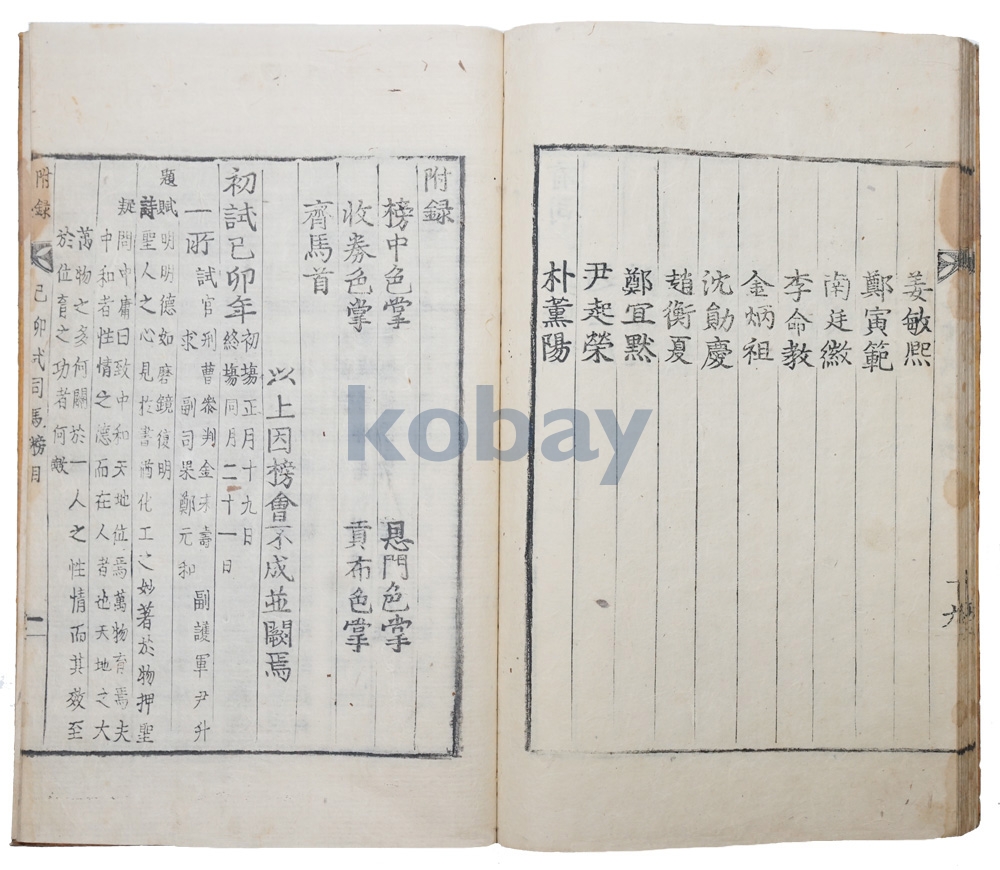 姜敏熙
鄭寅範
南廷徽
李命教
金炳祖
沈勛慶
趙衡夏
鄭宜默
尹起榮
朴薰陽
十六
附録
榜中色掌 恩門色掌
收劵色掌 貢布色掌
齊馬首
以上因榜會不成並闕焉
初試己卯年
初場正月十九日
終場同月二十一日
一所
試官刑曹參判金 壽 副護軍尹升
求 副司果鄭元和
題賦明明德如磨鏡復明
詩聖人之心見於書酋化工之妙著於物押聖
疑問中庸曰致中和天地位焉萬物育焉夫
中和者性情之德而在人者也天地之大
萬物之多何關於一人之性情而其效至
於位育之功者何歟
附録
己卯式司馬榜目
一
kobay